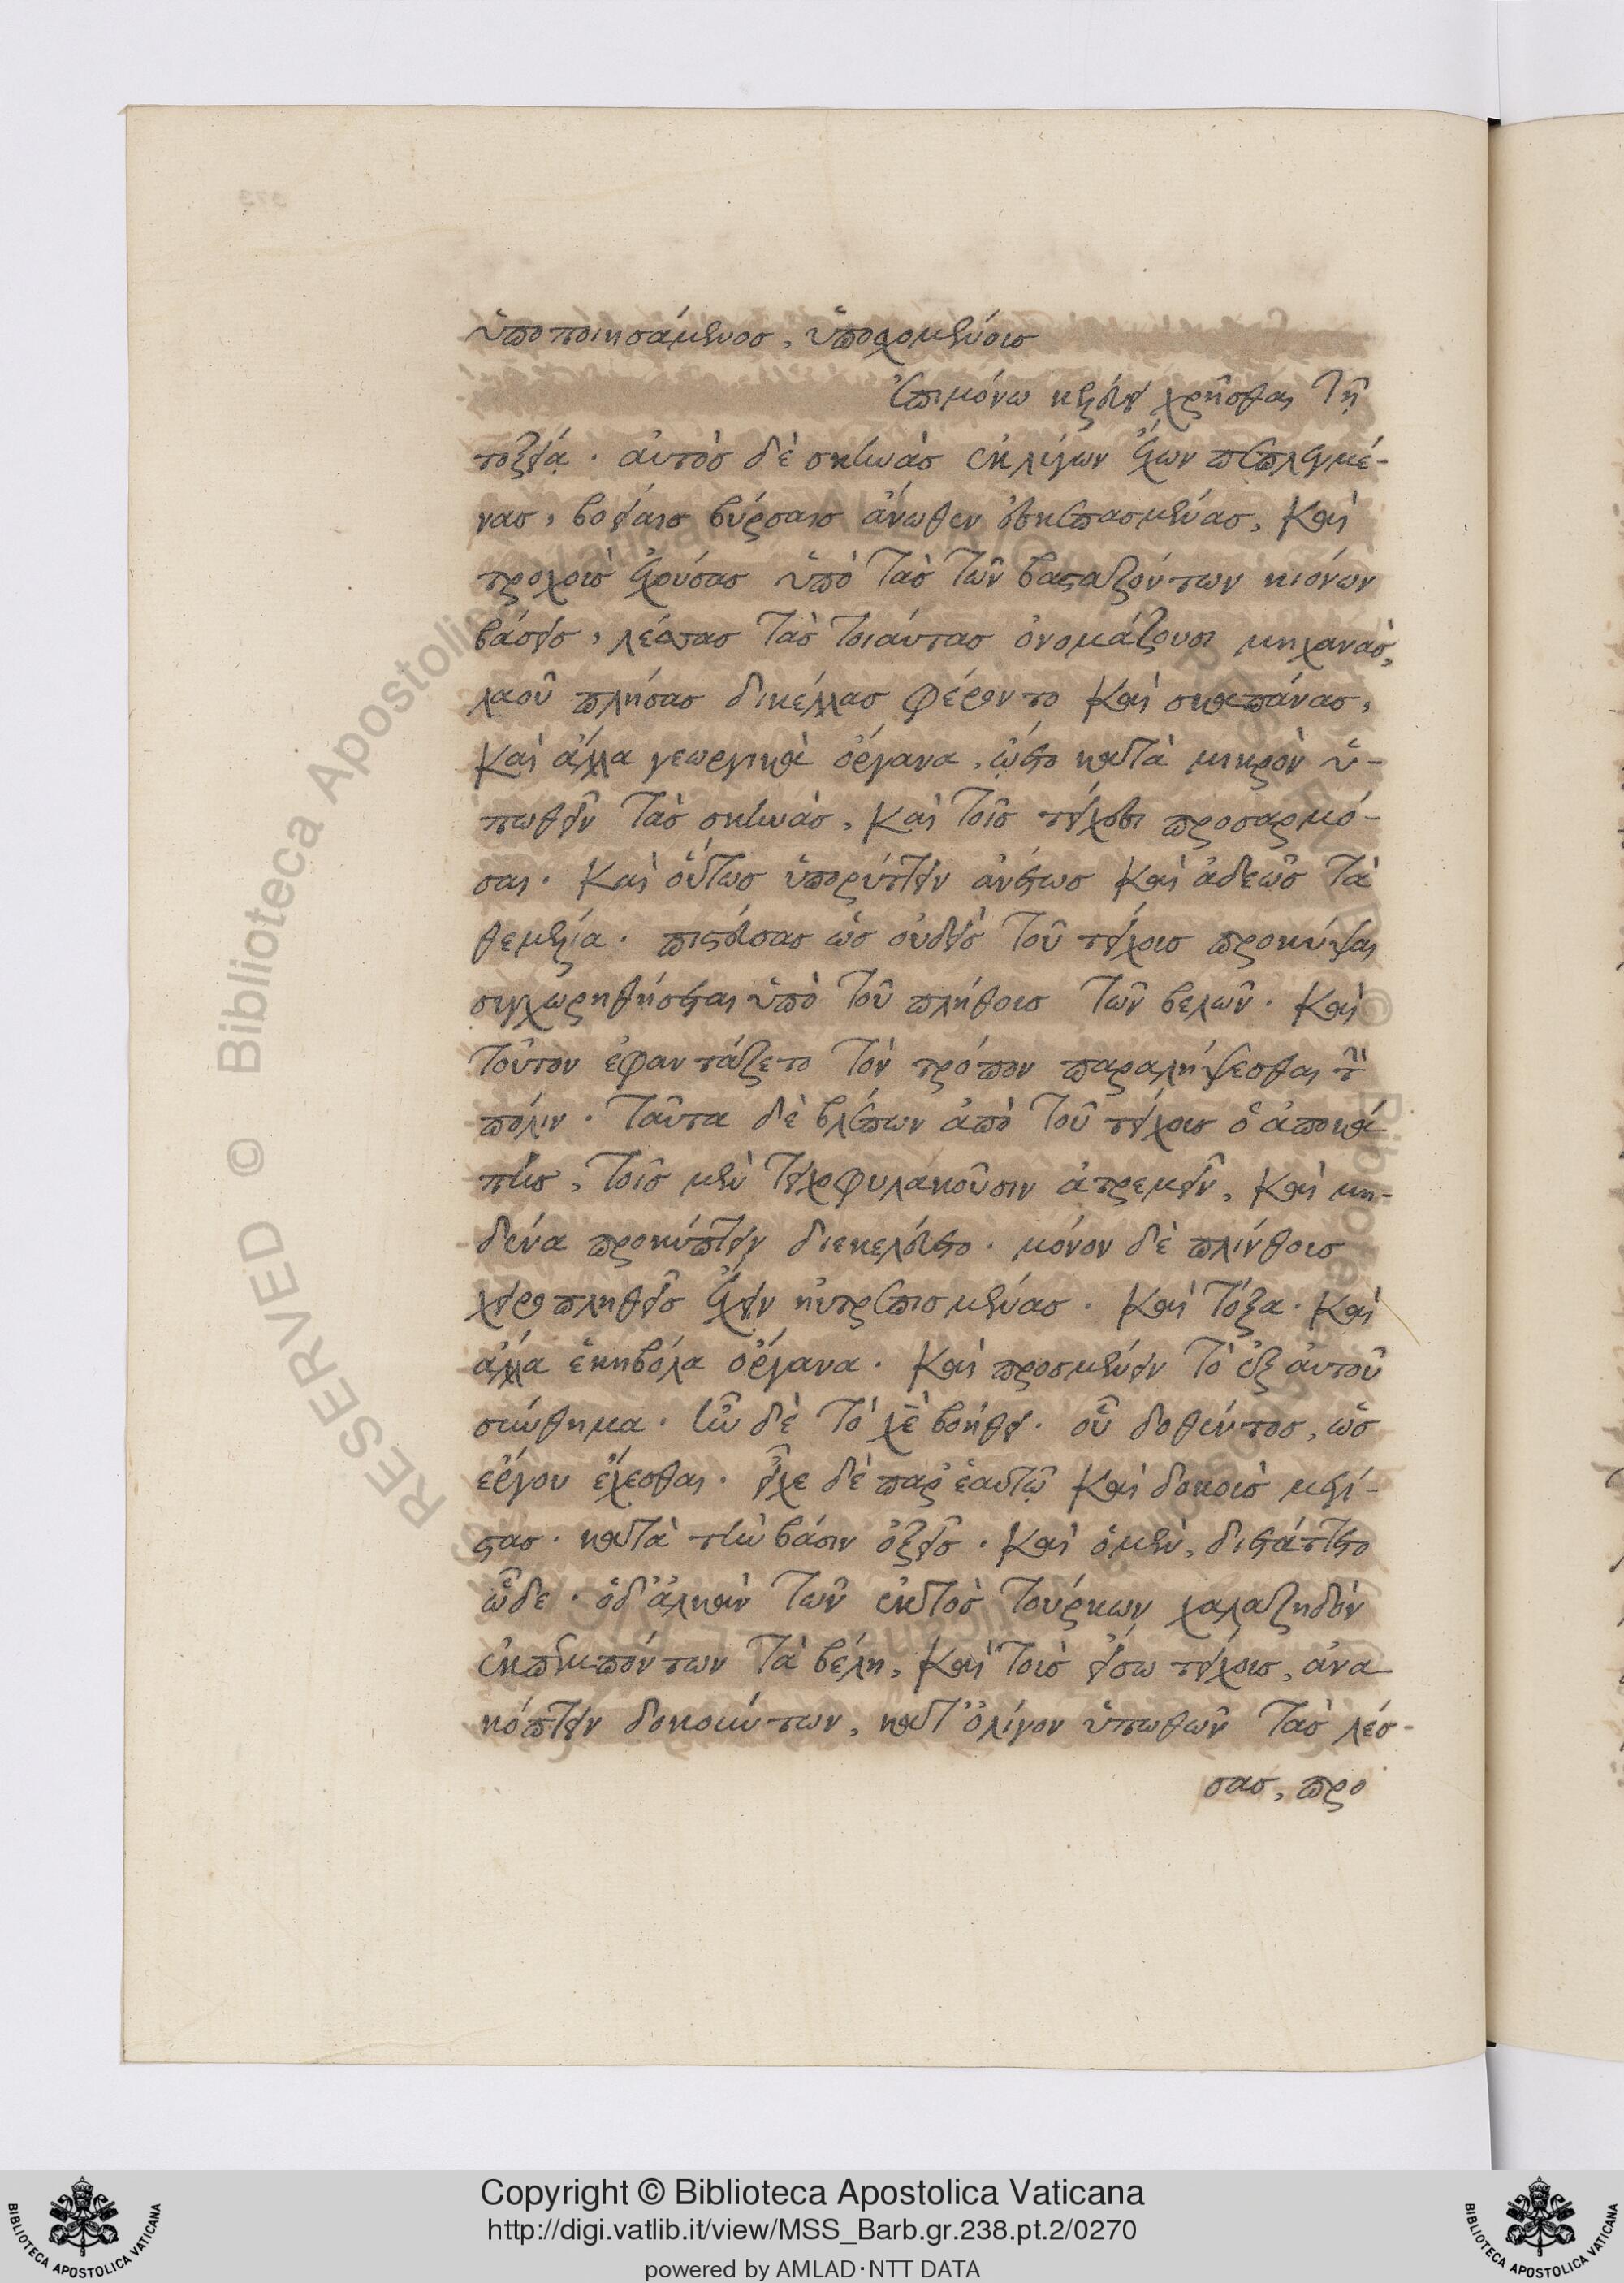 ὑποποιησάμενος, ὑποσχομένοις
ἐπιμόνω κελεύει χρῆσθαι τῇ
τοξείᾳ. αὐτὸς δὲ σκηνὰς ἐκ λύγων ἔχων πεπλεγμέ-
νας, βοείαις βύρσαις ἄνωθεν ἐσκεπασμένας, καὶ
τροχοὺς ἐχούσας ὑπὸ τὰς τῶν βασταζόντων κιόνων
βάσεις, λέσσας τὰς τοιαύτας ὀνομάζουσι μηχανὰς,
λαοῦ πλήσας δικέλλας φέροντο καὶ σκαπάνας,
καὶ ἄλλα γεωργικὰ ὄργανα, ᾤετο κατὰ μικρὸν ὑ-
πωθεῖν τὰς σκηνὰς, καὶ τοῖς τείχεσι προσαρμό-
σαι. καὶ οὕτως ὑπορύττειν ἀνέτως καὶ ἀδεῶς τὰ
θεμέλια. πιστεύσας ὡς οὐδεὶς τοῦ τείχους προκύψαι
συγχωρηθήσεται ὑπὸ τοῦ πλήθους τῶν βελῶν. καὶ
τοῦτον ἐφαντάζετο τὸν τρόπον παραλήψεσθαι τὴν
πόλιν. ταῦτα δὲ βλέπων ἀπὸ τοῦ τείχους ὁ ἀποκά
της, τοῖς μὲν τειχοφυλακοῦσιν ἀτρεμεῖν, καὶ μη-
δένα προκύπτειν διεκελεύετο. μόνον δὲ πλίνθους
χειροπληθεῖς ἔχειν ηὐτρεπισμένας. καὶ τόξα. καὶ
ἄλλα ἑκηβόλα ὄργανα. καὶ προσμένειν τὸ ἐξ αὐτοῦ
σύνθημα. ἦν δὲ τὸ χ̅ὲ̅ βοήθει. οὗ δοθέντος, ὡς
ἔργου ἔχεσθαι. εἶχε δὲ παρ ἑαυτῷ καὶ δοκοὺς μεγί-
στας. κατὰ τὴν βάσιν ὀξεῖς. καὶ ὁ μὲν, διετάττετο
ὧδε. ὁ δ' ἀλικὰν τῶν ἐκτὸς τούρκων χαλαζηδὸν
ἐκπεμπόντων τὰ βέλη, καὶ τοὺς εἴσω τείχους, ἀνα
κόπτειν δοκούντων, κατ' ὀλίγον ὑπωθῶν τὰς λέσ-
σας, προ